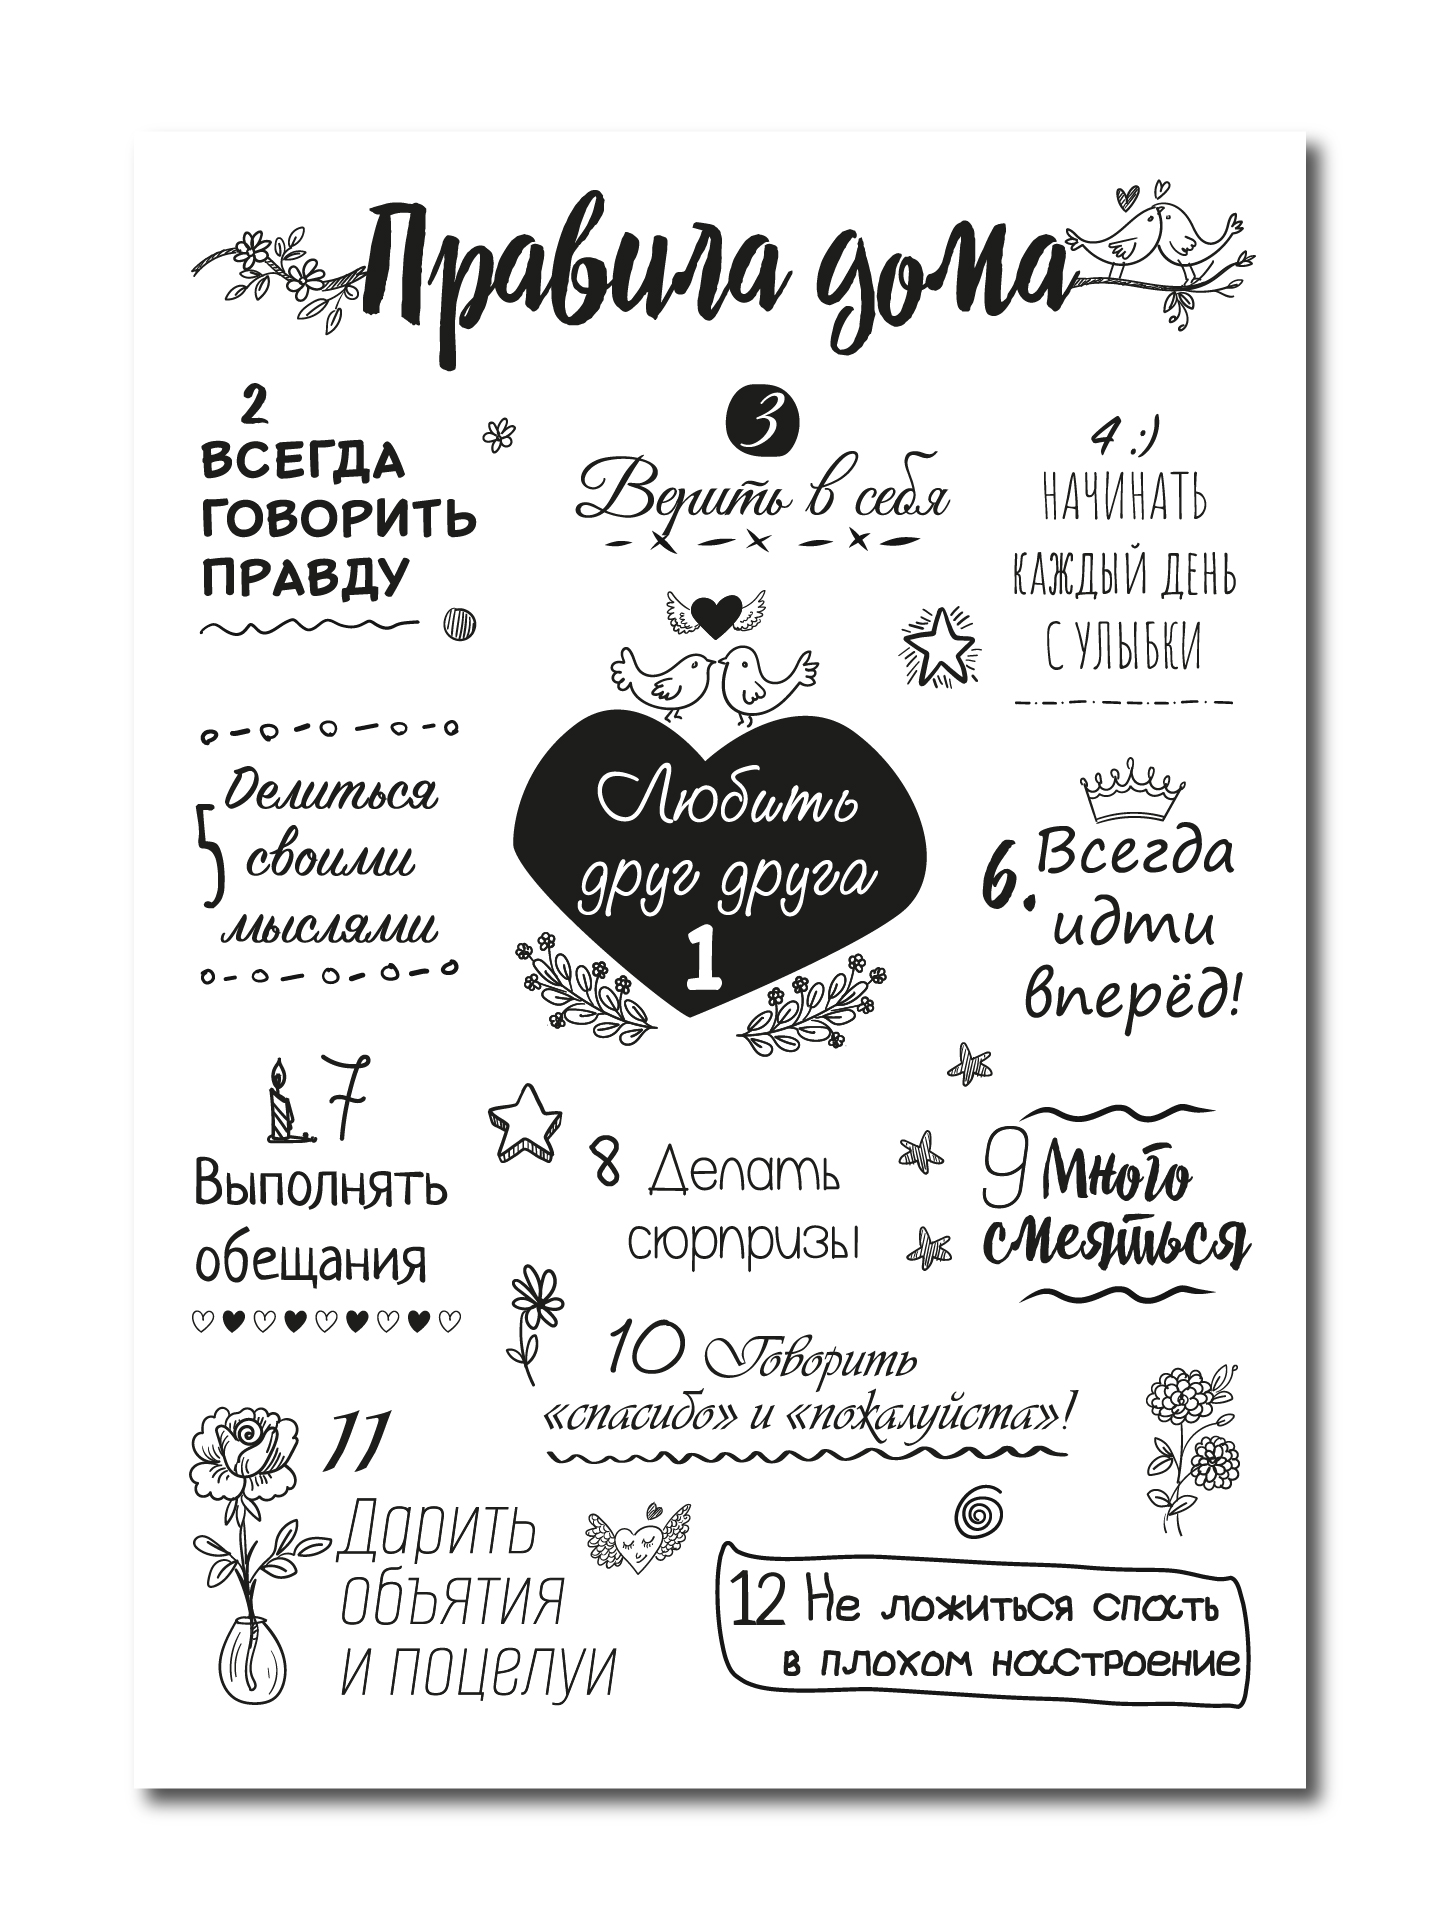 Правила дома
2
ВСЕГДА
ГОВОРИТЬ
ПРАВДУ
3
Верить в себя
4 :)
НАЧИНАТЬ
КАЖДЫЙ ДЕНЬ
С УЛЫБКИ
Любить
друг друга
1
5 Делиться
своими
мыслями
6. Всегда
идти
вперёд!
7
Выполнять
обещания
8 Делать
сюрпризы
9 Много
смеяться
10 Говорить
«спасибо» и «пожалуйста»!
11
Дарить
объятия
и поцелуи
12 Не ложиться спать
в плохом настроение